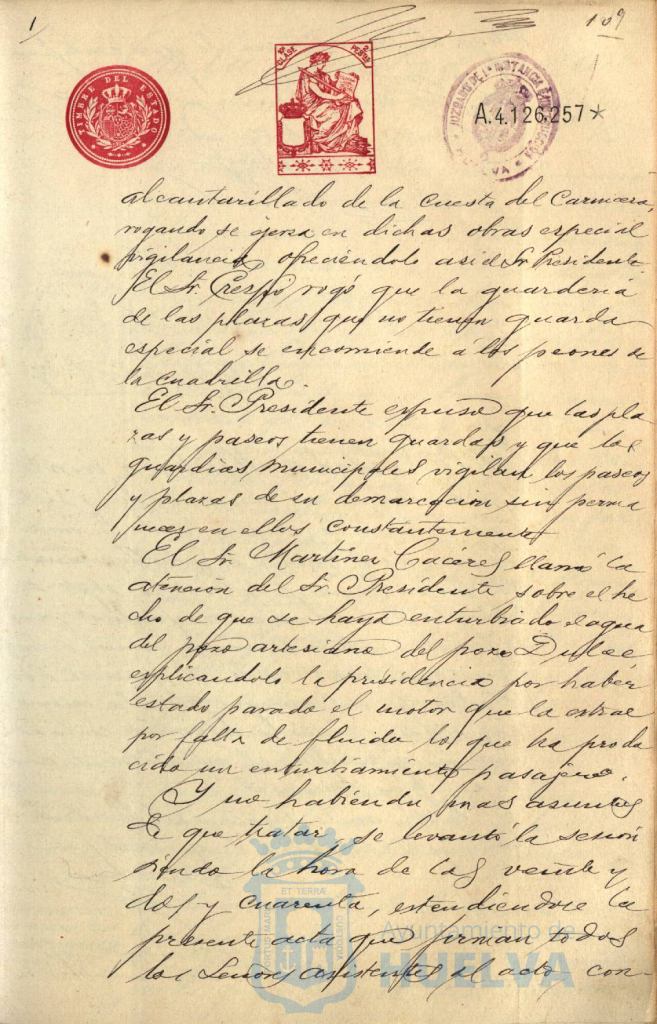 1
109
TIMBRE DEL ESTADO
10ª CLASE
2 PESETAS
JUZGADO DE 1ª INSTANCIA
HUELVA
A.4.126.257*
alcantarillado de la cuesta del Carnicero,
rogando se ejerza en dichas obras especial
vigilancia, ofreciéndolo asi el Sr. Presidente.
El Sr. Crespo rogó que la guarderia
de las plazas que no tienen guarda
especial se encomiende á los peones de
la cuadrilla.
El Sr. Presidente expuso que las pla
zas y paseos tienen guardas y que los
guardias municipales vigilan los paseos
y plazas de su demarcacion sin perma
necer en ellos constantemente
El Sr. Martinez Cáceres llamó la
atención del Sr. Presidente sobre el he
cho de que se haya enturbiado el agua
del pozo artesiano del pozo Dulce
explicandolo la presidencia por haber
estado parado el motor que la extrae
por falta de fluido lo que ha produ
cido un enturbiamiento pasajero.
Y no habiendo mas asuntos
de que tratar, se levantó la sesión
siendo la hora de las veinte y
dos y cuarenta, extendiendose la
presente acta que firman todos
los Señores asistentes al acto con-
ET TERRAE
PORTUS MARIS
CUSTODIA
Ayuntamiento de
HUELVA